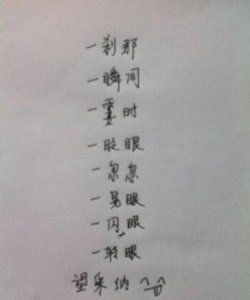 一刹那
一瞬间
一霎时
一眨眼
一忽忽
一晃眼
一闪眼
一转眼
望采纳